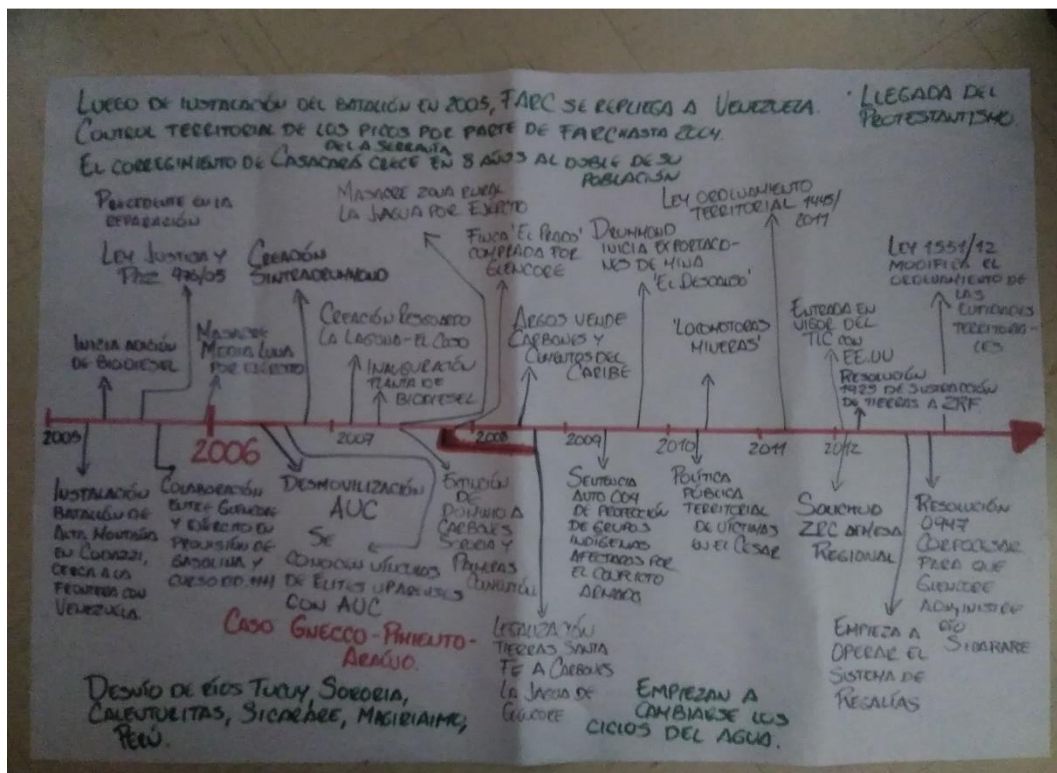 LUEGO DE INSTALACIÓN DEL BATALLÓN EN 2005, FARC SE REPLIEGA A VENEZUELA.
CONTROL TERRITORIAL DE LOS PICOS POR PARTE DE FARC HASTA 2004.
DE LA SERRANÍA
EL CORREGIMIENTO DE CASACARÁ CRECE EN 8 AÑOS AL DOBLE DE SU
POBLACIÓN
· LLEGADA DEL
PROTESTANTISMO.
PRECEDENTE EN LA
REPARACIÓN
LEY JUSTICIA Y
PAZ 975/05
INICIA ADICIÓN
DE BIODIESEL
MASACRE
MEDIA LUNA
POR EJÉRCITO
CREACIÓN
SINTRADRUMMOND
CREACIÓN RESGUARDO
LA LAGUNA-EL COSO
INAUGURACIÓN
PLANTA DE
BIODIESEL
MASACRE ZONA RURAL
LA JAGUA POR EJÉRCITO
FINCA 'EL PRADO'
COMPRADA POR
GLENCORE
ARGOS VENDE
CARBONES Y
CEMENTOS DEL
CARIBE
DRUMMOND
INICIA EXPORTACIO-
NES DE MINA
'EL DESCANSO'
'LOCOMOTORAS
MINERAS'
LEY ORDENAMIENTO
TERRITORIAL 1445/
2011
ENTRADA EN
VIGOR DEL
TLC CON
EE.UU
RESOLUCIÓN
1925 DE SUSTRACCIÓN
DE TIERRAS A ZRF
LEY 1551/12
MODIFICA EL
ORDENAMIENTO DE
LAS
ENTIDADES
TERRITORIA-
LES
2005
2006
2007
2008
2009
2010
2011
2012
INSTALACIÓN
BATALLÓN DE
ALTA MONTAÑA
EN CODAZZI,
CERCA A LA
FRONTERA CON
VENEZUELA.
COLABORACIÓN
ENTRE GLENCORE
Y EJÉRCITO EN
PROVISIÓN DE
GASOLINA Y
CURSO DD.HH
DESMOVILIZACIÓN
AUC
SE
CONOCEN VÍNCULOS
DE ÉLITES UPARENSES
CON AUC
CASO GNECCO-PIMIENTO-
ARAÚJO.
DE
DOMINIO A
CARBONES
SORORIA Y
LEGALIZACIÓN
TIERRAS SANTA
FE A CARBONES
LA JAGUA DE
GLENCORE
SENTENCIA
AUTO 004
DE PROTECCIÓN
DE GRUPOS
INDÍGENAS
AFECTADOS POR
EL CONFLICTO
ARMADO
POLÍTICA
PÚBLICA
TERRITORIAL
DE VÍCTIMAS
EN EL CESAR
SOLICITUD
ZRC
REGIONAL
EMPIEZA A
OPERAR EL
SISTEMA DE
REGALÍAS
RESOLUCIÓN
0947
CORPOCESAR
PARA QUE
GLENCORE
ADMINISTRE
RÍO
SICARARE
DESVÍO DE RÍOS TUCUY, SORORIA,
CALENTURITAS, SICARARE, MAGIRIAIMO,
PERÚ.
EMPIEZAN A
CAMBIARSE LOS
CICLOS DEL AGUA.